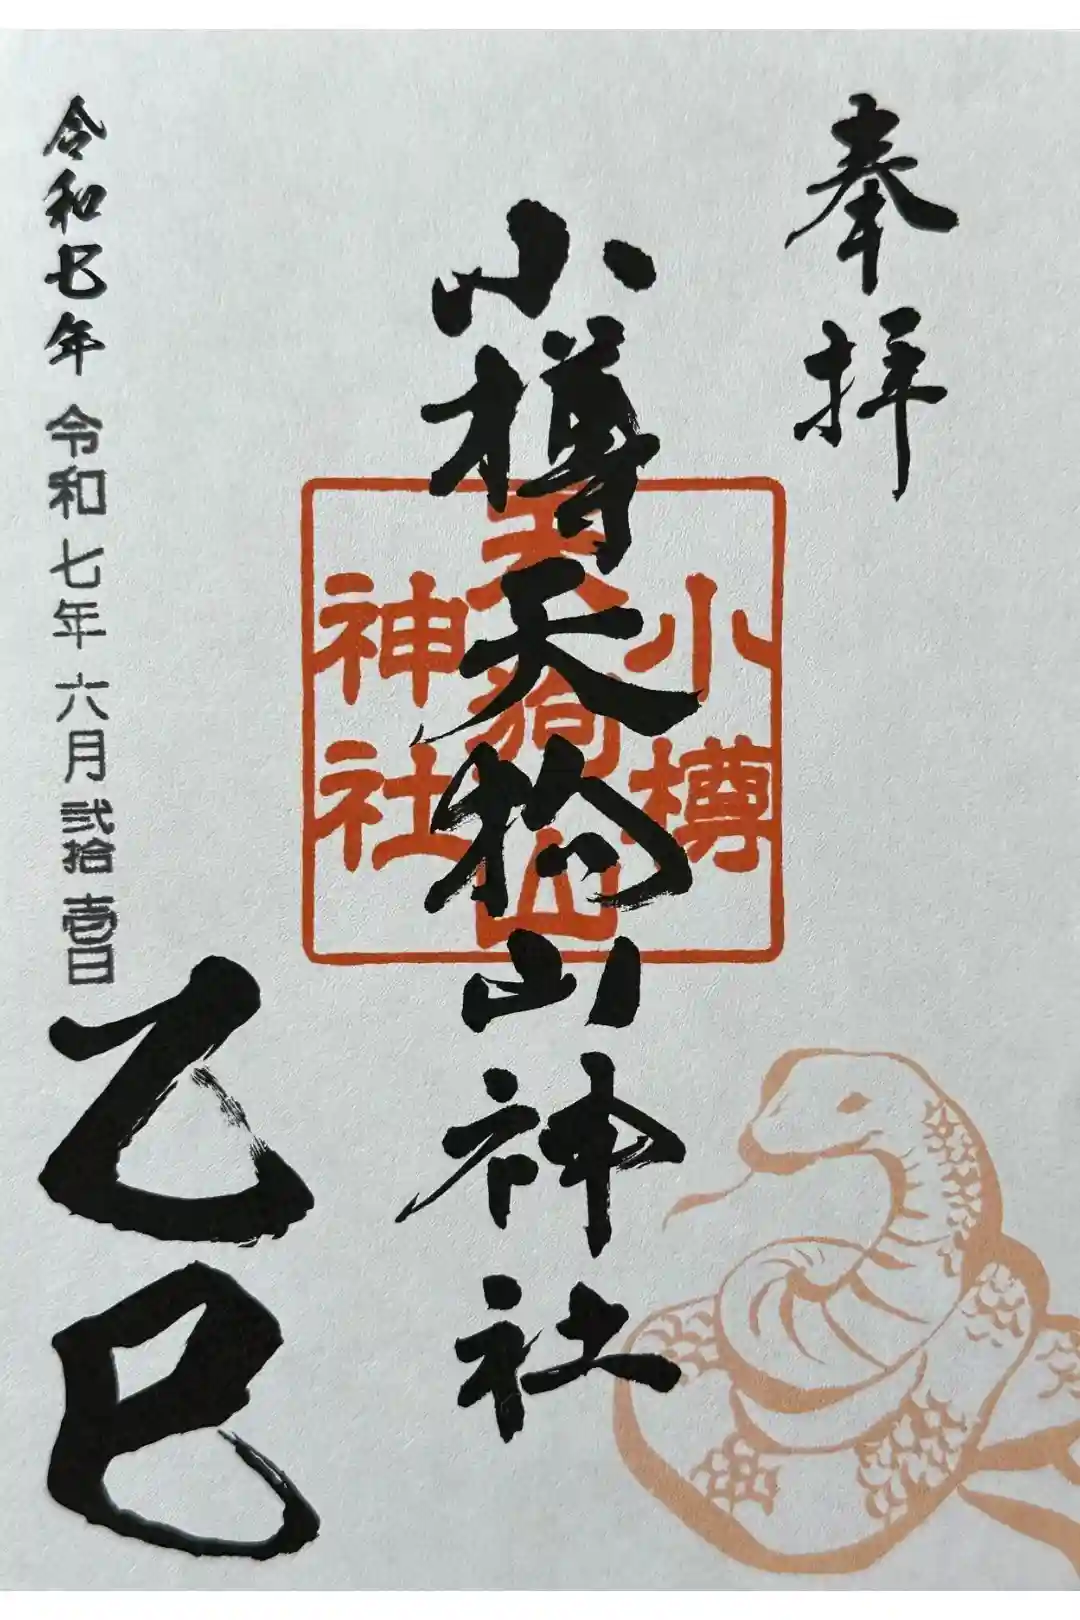 奉拝
小樽天狗山神社
小樽
天狗山
神社
令和七年
令和七年六月弐拾壱日
乙巳